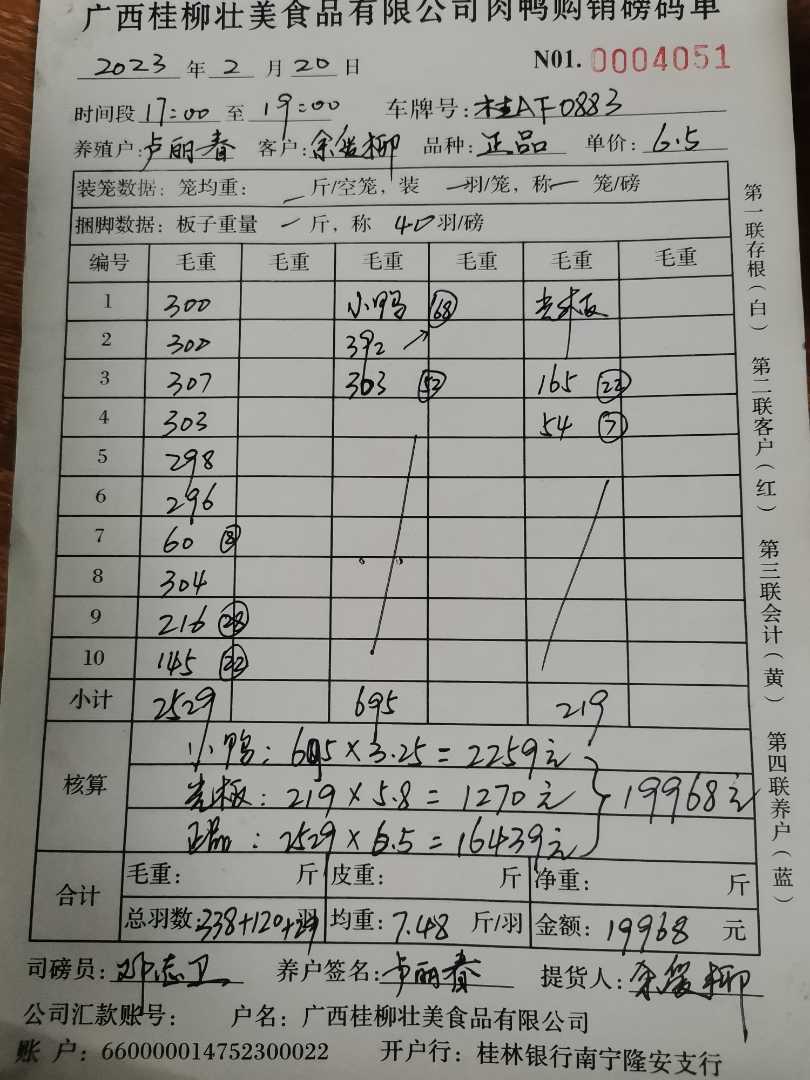 广西桂柳壮美食品有限公司肉鸭购销磅码单
2023 年 2 月 20 日 N01. 0004051
时间段 17:00 至 19:00 车牌号: 桂AF0883
养殖户: 卢丽春 客户: 余 柳 品种: 正品 单价: 6.5
装笼数据: 笼均重: 一 斤/空笼, 装 一 羽/笼, 称 一 笼/磅
捆脚数据: 板子重量 一 斤, 称 40 羽/磅
编号 毛重 毛重 毛重 毛重 毛重 毛重
1 300 小鸭 168 光板
2 300 392
3 307 303 52 165 22
4 303 54 7
5 298
6 296
7 60 8
8 304
9 216 28
10 145 22
小计 2529 695 219
核算
小鸭: 695×3.25=2259元
光板: 219×5.8=1270元 19968元
正品: 2529×6.5=16439元
合计
毛重: 斤 皮重: 斤 净重: 斤
总羽数: 338+120+29 羽 均重: 7.48 斤/羽 金额: 19968 元
司磅员: 邓志卫 养户签名: 卢丽春 提货人: 余 柳
公司汇款账号: 户名: 广西桂柳壮美食品有限公司
账 户: 660000014752300022 开户行: 桂林银行南宁隆安支行
第一联存根(白) 第二联客户(红) 第三联会计(黄) 第四联养户(蓝)